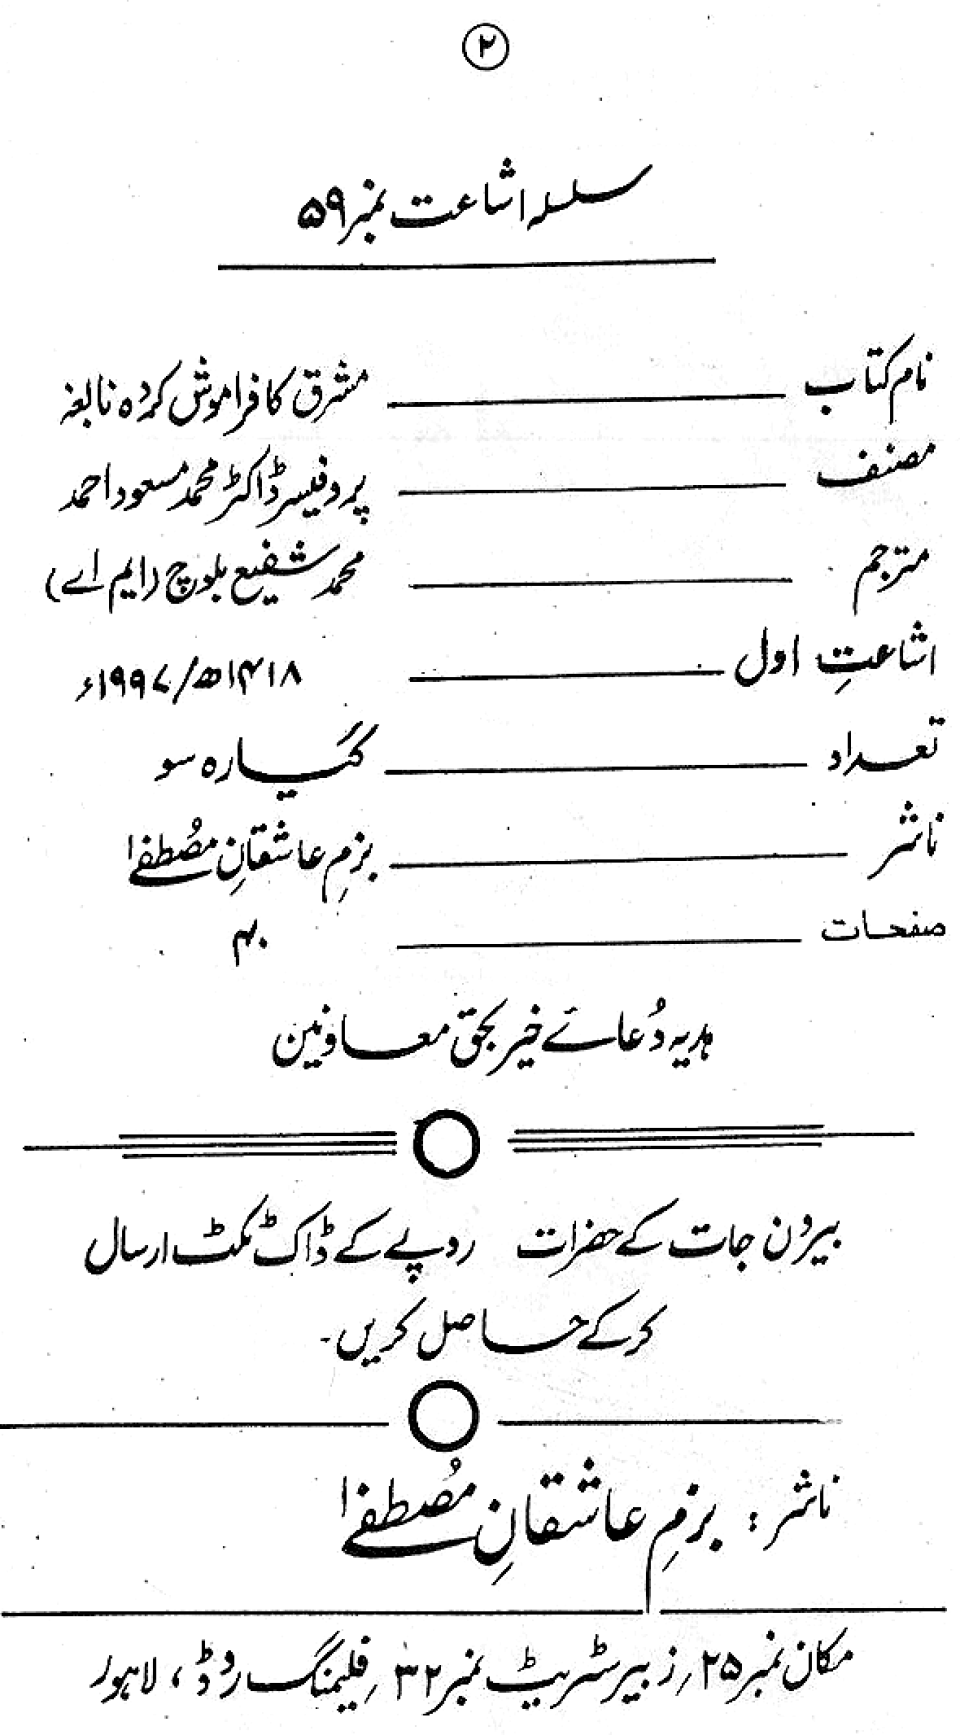 ۲
سلسلہ اشاعت نمبر ۵۹
نام کتاب ــــــــ مشرق کا فراموش کردہ نابغہ
مصنف ــــــــ پروفیسر ڈاکٹر محمد مسعود احمد
مترجم ــــــــ محمد شفیع بلوچ (ایم اے)
اشاعتِ اول ــــــــ ۱۴۱۸ھ/۱۹۹۷ء
تعداد ــــــــ گیارہ سو
ناشر ــــــــ بزمِ عاشقانِ مُصطفےٰ
صفحات ــــــــ ۴۰
ہدیہ دُعائے خیر بحق معاونین
بیرون جات کے حضرات روپے کے ڈاک ٹکٹ ارسال
کر کے حاصل کریں۔
ناشر : بزمِ عاشقانِ مُصطفےٰ
مکان نمبر ۲۵، زبیر سٹریٹ نمبر ۳۲، فلیمنگ روڈ، لاہور